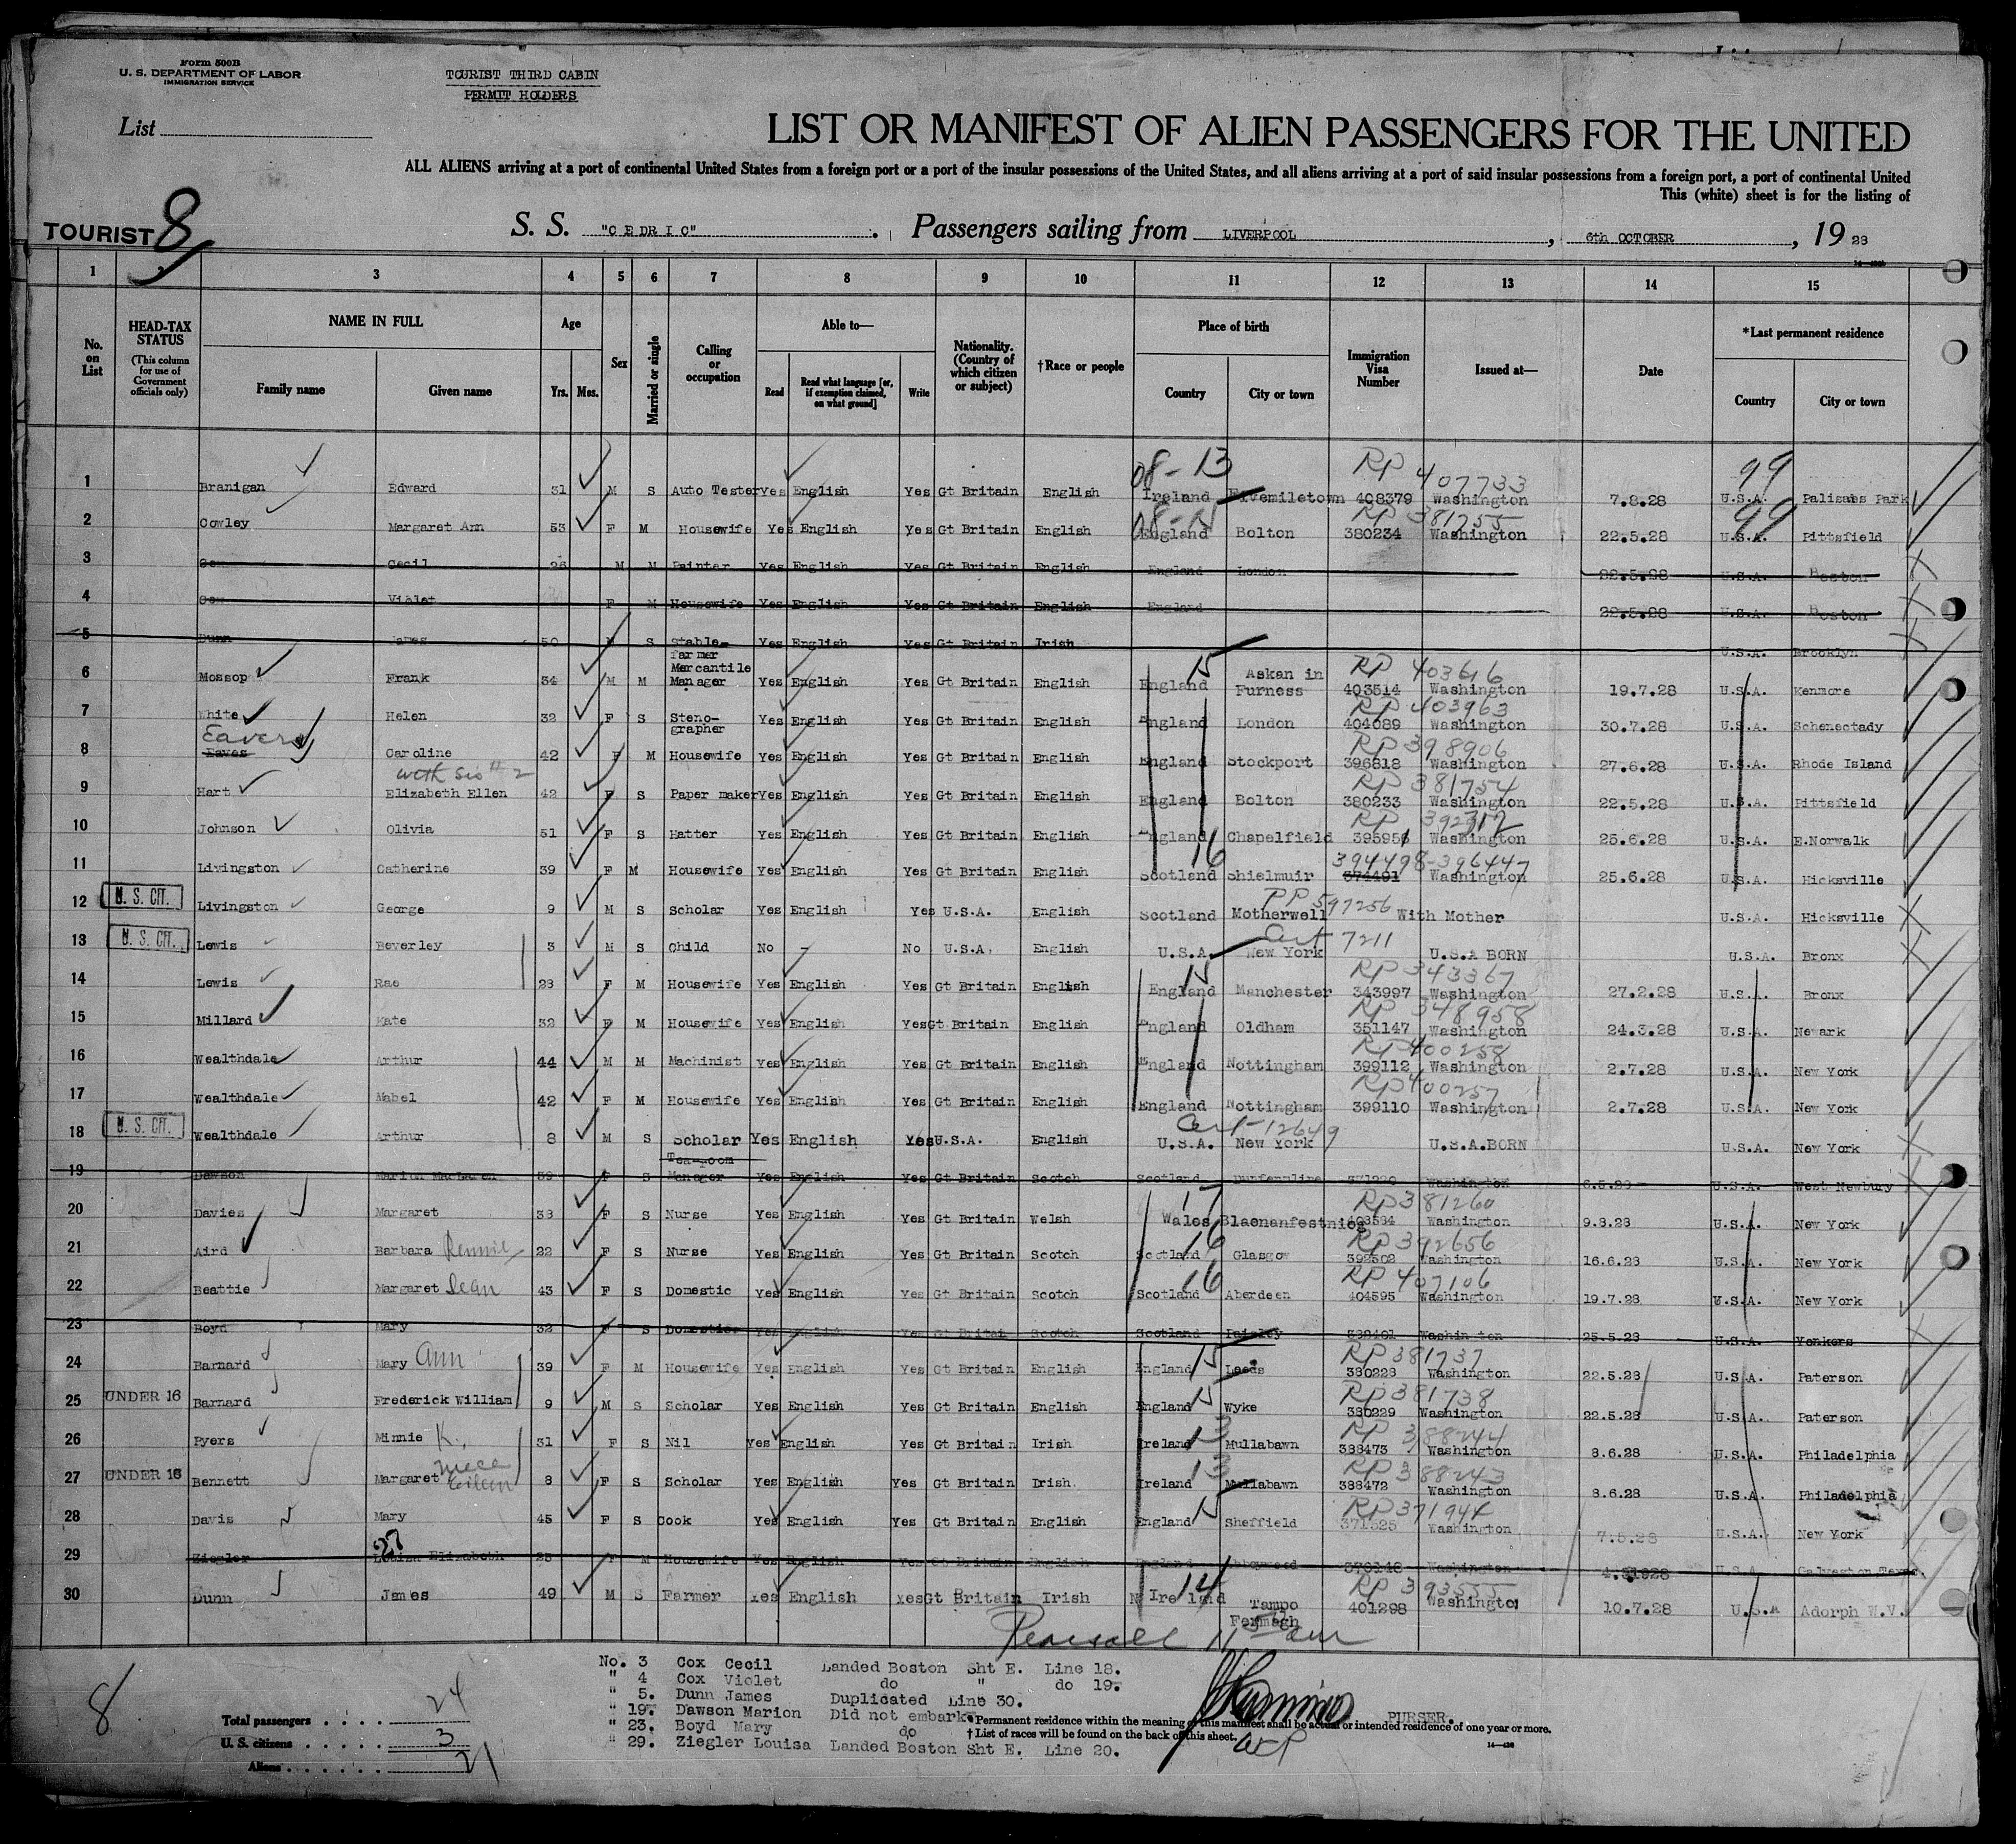 Form 500B
U. S. DEPARTMENT OF LABOR
IMMIGRATION SERVICE
TOURIST THIRD CABIN
PERMIT HOLDERS
List
LIST OR MANIFEST OF ALIEN PASSENGERS FOR THE UNITED
ALL ALIENS arriving at a port of continental United States from a foreign port or a port of the insular possessions of the United States, and all aliens arriving at a port of said insular possessions from a foreign port, a port of continental United
This (white) sheet is for the listing of
TOURIST 8
S. S. "CEDRIC" Passengers sailing from LIVERPOOL, 6th OCTOBER, 19 28
1 3 4 5 6 7 8 9 10 11 12 13 14 15
No. on List
HEAD-TAX STATUS
(This column for use of Government officials only)
NAME IN FULL
Family name Given name
Age
Yrs. Mos.
Sex
Married or single
Calling or occupation
Able to—
Read Read what language [or, if exemption claimed, on what ground] Write
Nationality. (Country of which citizen or subject)
†Race or people
Place of birth
Country City or town
Immigration Visa Number
Issued at—
Date
*Last permanent residence
Country City or town
08-13 RP 407733 99
1 Branigan Edward 31 M S Auto Tester Yes English Yes Gt Britain English Ireland Fivemiletown 408379 Washington 7.8.28 U.S.A. Palisaes Park
RP 381755 99
2 Cowley Margaret Ann 53 F M Housewife Yes English Yes Gt Britain English England Bolton 380234 Washington 22.5.28 U.S.A. Pittsfield
3 Cox Cecil 26 M M Painter Yes English Yes Gt Britain English England London 22.5.28 U.S.A. Boston
4 Cox Violet F M Housewife Yes English Yes Gt Britain English England 22.5.28 U.S.A. Boston
5 Dunn James 50 M S Stable-farmer Yes English Yes Gt Britain Irish U.S.A. Brooklyn
15 RP 403616
6 Mossop Frank 34 M M Mercantile Manager Yes English Yes Gt Britain English England Askan in Furness 403514 Washington 19.7.28 U.S.A. Kenmore
RP 403963
7 White Helen 32 F S Steno-grapher Yes English Yes Gt Britain English England London 404089 Washington 30.7.28 U.S.A. Schenectady
Eavers RP 398906
8 Eaves Caroline 42 F M Housewife Yes English Yes Gt Britain English England Stockport 396818 Washington 27.6.28 U.S.A. Rhode Island
with sis # 2 RP 381754
9 Hart Elizabeth Ellen 42 F S Paper maker Yes English Yes Gt Britain English England Bolton 380233 Washington 22.5.28 U.S.A. Pittsfield
RP 392312
10 Johnson Olivia 51 F S Hatter Yes English Yes Gt Britain English England Chapelfield 395956 Washington 25.6.28 U.S.A. E.Norwalk
16 394498-396447
11 Livingston Catherine 39 F M Housewife Yes English Yes Gt Britain English Scotland Shielmuir 374491 Washington 25.6.28 U.S.A. Hicksville
PP 597256
12 U. S. CIT. Livingston George 9 M S Scholar Yes English Yes U.S.A. English Scotland Motherwell With Mother U.S.A. Hicksville
Cert 7211
13 U. S. CIT. Lewis Beverley 3 M S Child No - No U.S.A. English U.S.A. New York U.S.A BORN U.S.A. Bronx
15 RP 343367
14 Lewis Rae 28 F M Housewife Yes English Yes Gt Britain English England Manchester 343997 Washington 27.2.28 U.S.A. Bronx
RP 348958
15 Millard Kate 32 F M Housewife Yes English Yes Gt Britain English England Oldham 351147 Washington 24.3.28 U.S.A. Newark
RP 400258
16 Wealthdale Arthur 44 M M Machinist Yes English Yes Gt Britain English England Nottingham 399112 Washington 2.7.28 U.S.A. New York
RP 400257
17 Wealthdale Mabel 42 F M Housewife Yes English Yes Gt Britain English England Nottingham 399110 Washington 2.7.28 U.S.A. New York
Cert-12649
18 U. S. CIT. Wealthdale Arthur 8 M S Scholar Yes English Yes U.S.A. English U.S.A. New York U.S.A.BORN U.S.A. New York
19 Dawson Marion MacLaren 39 F S Tea-room Manager Yes English Yes Gt Britain Scotch Scotland Dunfermline Washington 6.5.28 U.S.A. West Newbury
17 RP 381260
20 Davies Margaret 38 F S Nurse Yes English Yes Gt Britain Welsh Wales Blaenanfestniog Washington 9.8.28 U.S.A. New York
16 RP 392656
21 Aird Barbara Rennie 22 F S Nurse Yes English Yes Gt Britain Scotch Scotland Glasgow 392502 Washington 16.6.28 U.S.A. New York
16 RP 407106
22 Beattie Margaret Dean 43 F S Domestic Yes English Yes Gt Britain Scotch Scotland Aberdeen 404595 Washington 19.7.28 U.S.A. New York
23 Boyd Mary 32 F S Domestic Yes English Yes Gt Britain Scotch Scotland Paisley Washington 25.5.28 U.S.A. Yonkers
15 RP 381737
24 Barnard Mary Ann 39 F M Housewife Yes English Yes Gt Britain English England Leeds 380228 Washington 22.5.28 U.S.A. Paterson
15 RP 381738
25 UNDER 16 Barnard Frederick William 9 M S Scholar Yes English Yes Gt Britain English England Wyke 380229 Washington 22.5.28 U.S.A. Paterson
13 RP 388244
26 Pyers Minnie K. 31 F S Nil Yes English Yes Gt Britain Irish Ireland Mullabawn 388473 Washington 8.6.28 U.S.A. Philadelphia
niece 13 RP 388243
27 UNDER 16 Bennett Margaret Eileen 8 F S Scholar Yes English Yes Gt Britain Irish Ireland Mullabawn 388472 Washington 8.6.28 U.S.A. Philadelphia
15 RP 371944
28 Davis Mary 45 F S Cook Yes English Yes Gt Britain English England Sheffield 371525 Washington 7.5.28 U.S.A. New York
29 Ziegler Louisa Elizabeth 25 F M Housewife Yes English Yes Gt Britain English England Washington U.S.A. Galveston Texas
14 RP 393555
30 Dunn James 49 M S Farmer Yes English Yes Gt Britain Irish N Ireland Tampo Fermagh 401298 Washington 10.7.28 U.S.A Adorph W.V.
No. 3 Cox Cecil Landed Boston Sht E. Line 18.
" 4 Cox Violet do " do 19.
" 5. Dunn James Duplicated Line 30.
" 19. Dawson Marion Did not embark.
" 23. Boyd Mary do
" 29. Ziegler Louisa Landed Boston Sht E. Line 20.
PURSER.
8
Total passengers 24
U. S. citizens 3
Aliens 21
* Permanent residence within the meaning of this manifest shall be actual or intended residence of one year or more.
† List of races will be found on the back of this sheet.